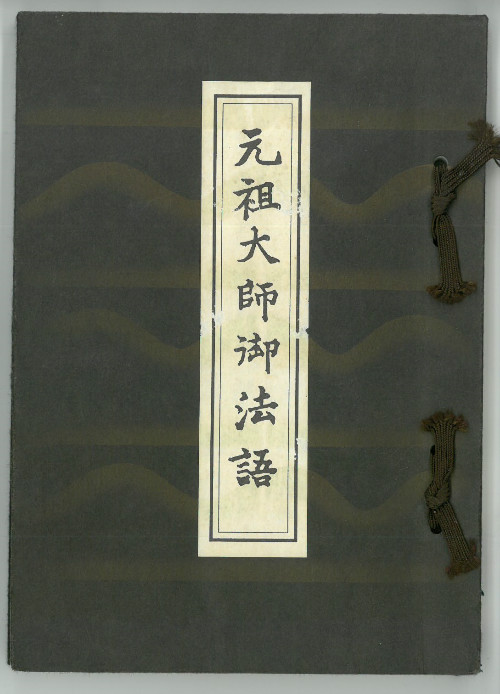 元祖大師御法語